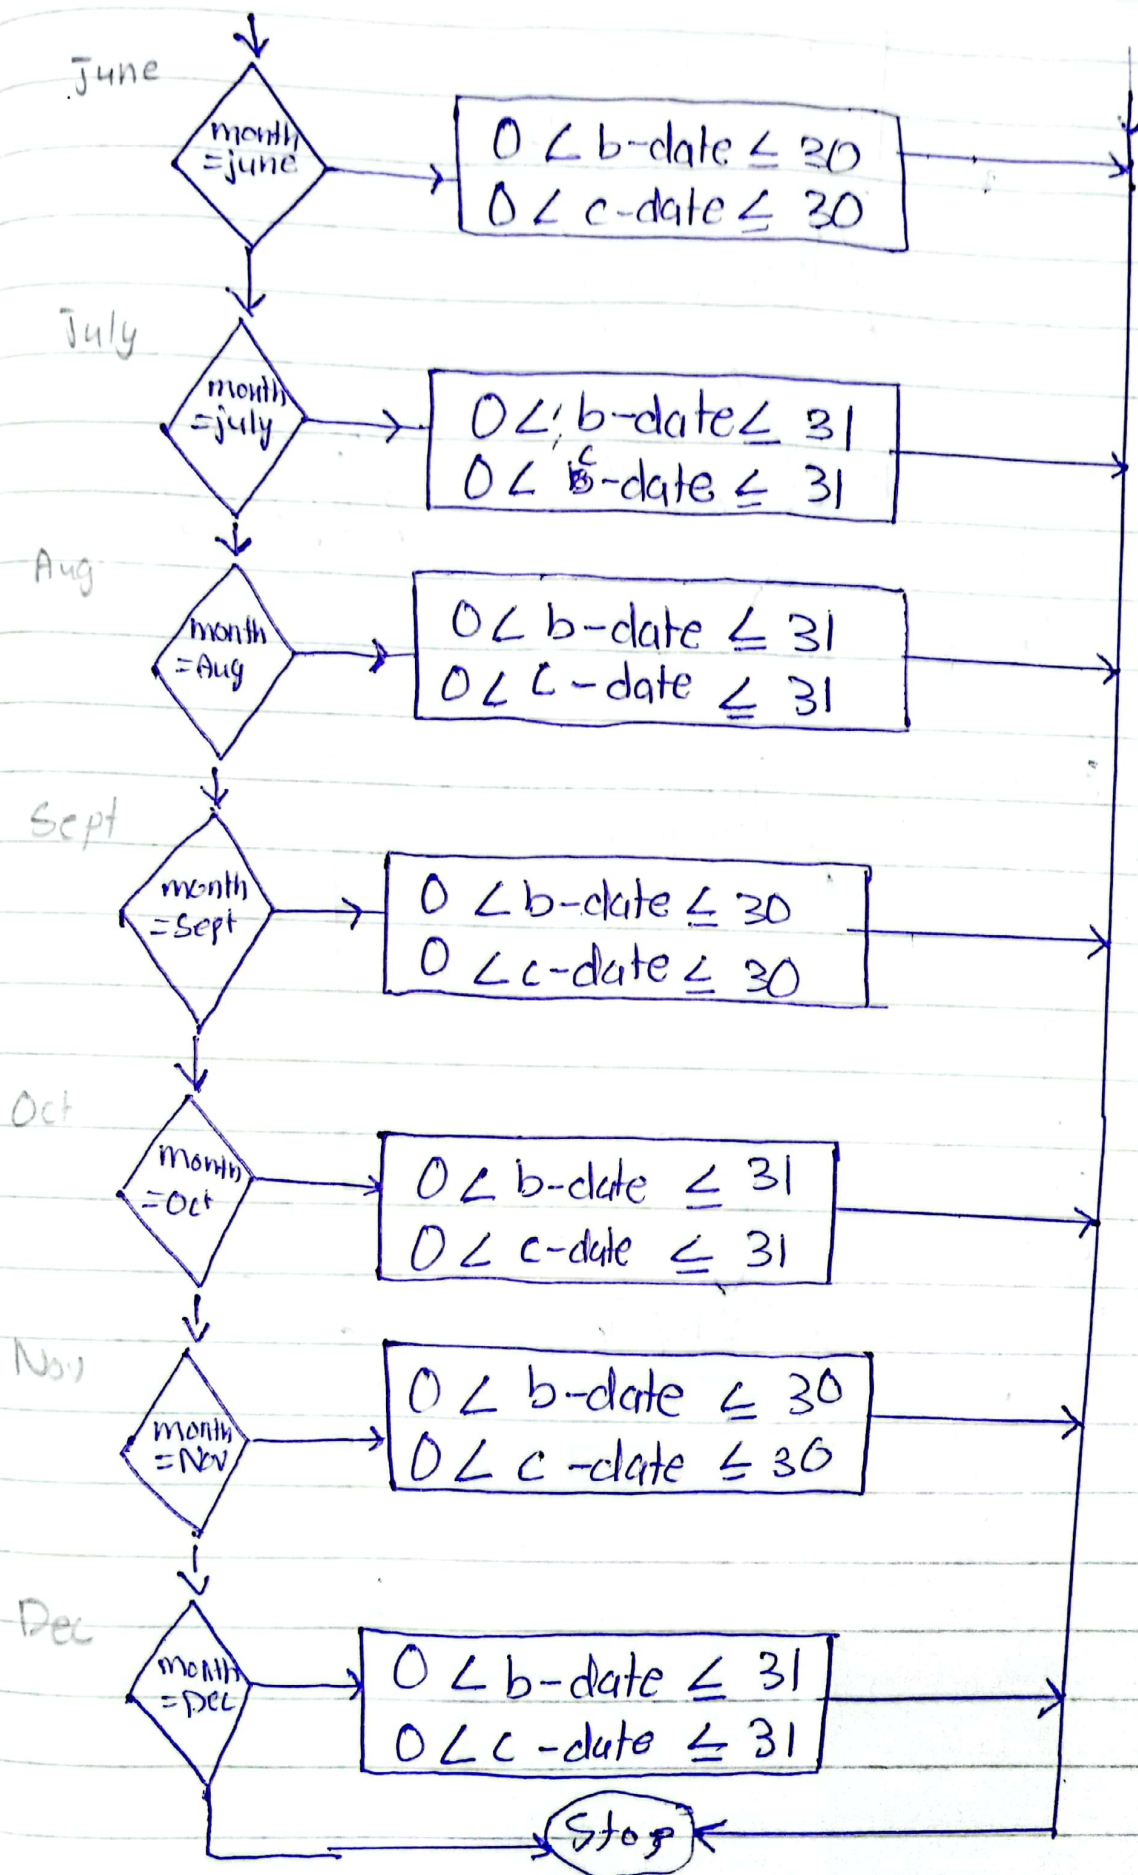 June
month
=june
0 < b-date ≤ 30
0 < c-date ≤ 30
July
month
=july
0 < b-date ≤ 31
0 < c-date ≤ 31
Aug
month
=Aug
0 < b-date ≤ 31
0 < c-date ≤ 31
Sept
month
=Sept
0 < b-date ≤ 30
0 < c-date ≤ 30
Oct
month
=Oct
0 < b-date ≤ 31
0 < c-date ≤ 31
Nov
month
=Nov
0 < b-date ≤ 30
0 < c-date ≤ 30
Dec
month
=Dec
0 < b-date ≤ 31
0 < c-date ≤ 31
Stop